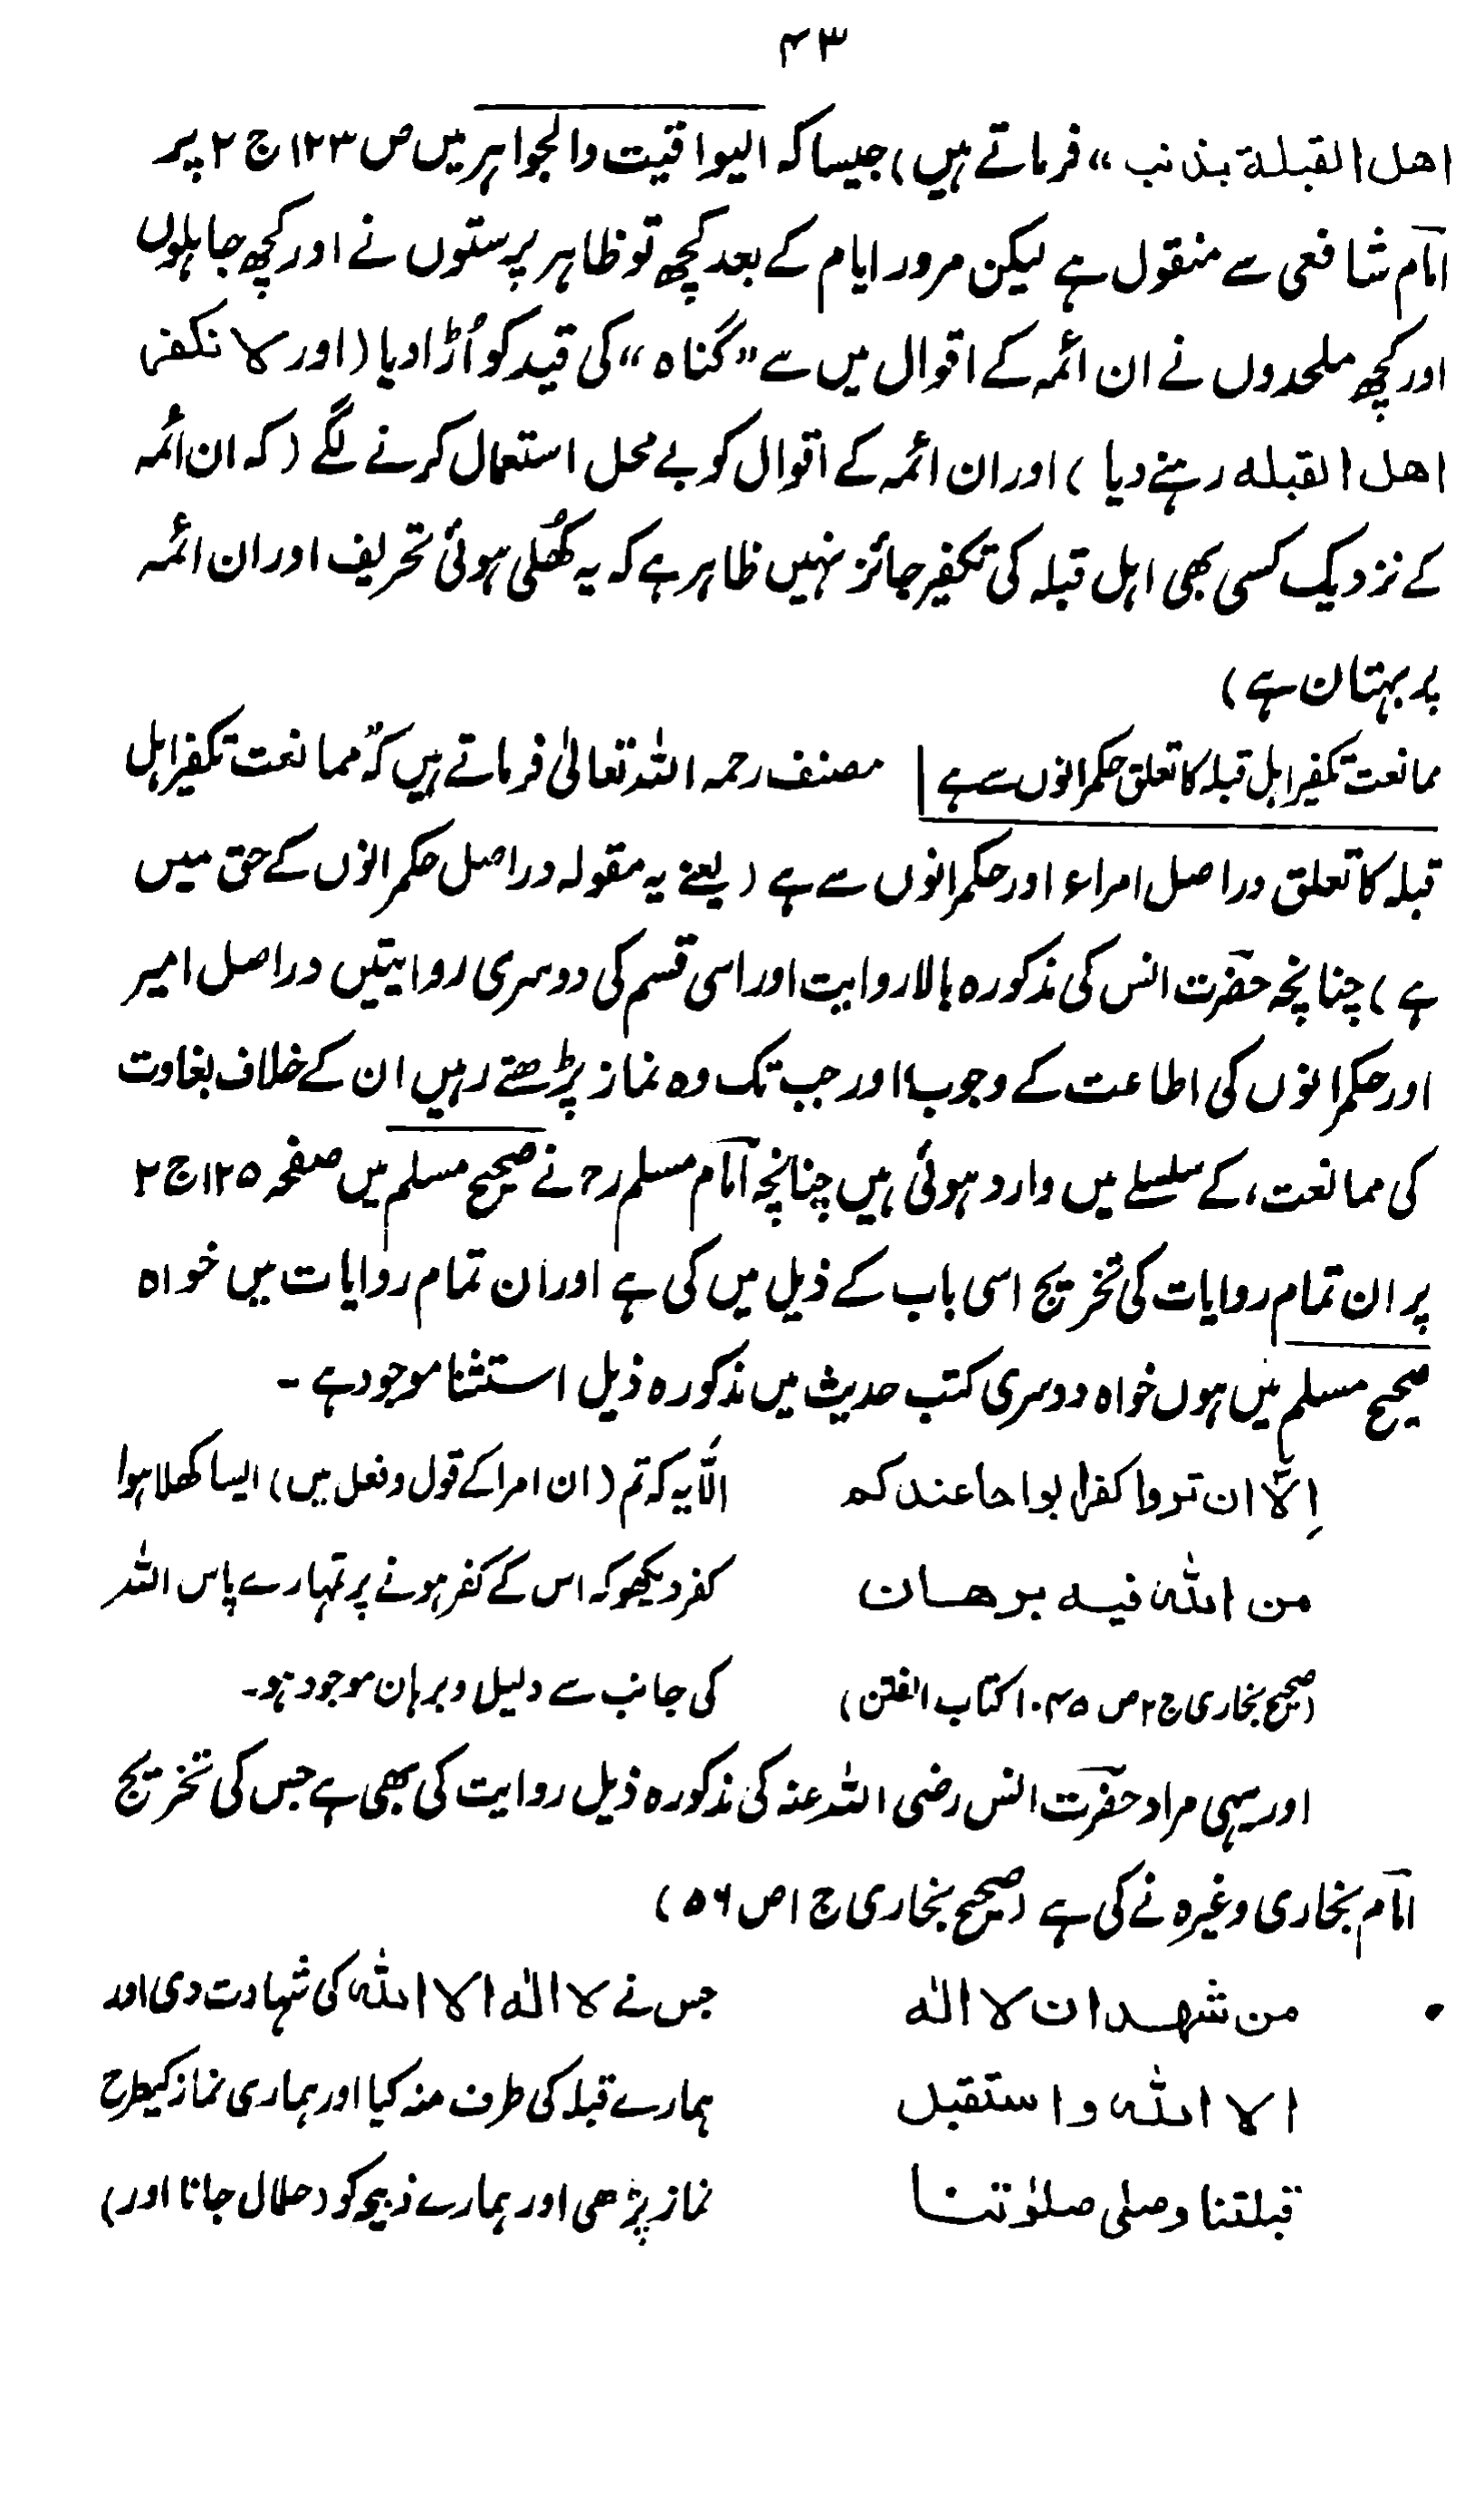 ۴۳
اهل القبلة بذنب“ فرماتے ہیں) جیسا کہ الیواقیت والجواہر میں ص ۱۲۳ ج ۲ پر
امام شافعی سے منقول ہے لیکن مرور ایام کے بعد کچھ تو ظاہر پرستوں نے اور کچھ جاہلوں
اور کچھ ملحدوں نے ان ائمہ کے اقوال میں سے ”گناہ“ کی قید کو اُڑا دیا (اور لا نکفر
اهل القبله رہنے دیا) اور ان ائمہ کے اقوال کو بے محل استعمال کرنے لگے (کہ ان ائمہ
کے نزدیک کسی بھی اہل قبلہ کی تکفیر جائز نہیں ظاہر ہے کہ یہ کھُلی ہوئی تحریف اور ان ائمہ
پر بہتان ہے)
ممانعت تکفیر اہل قبلہ کا تعلق حکمرانوں سے ہے | مصنف رحمہ اللہ تعالیٰ فرماتے ہیں کہ ممانعت تکفیر اہل
قبلہ کا تعلق دراصل امراء اور حکمرانوں سے ہے (یعنے یہ مقولہ دراصل حکمرانوں کے حق میں
ہے) چنانچہ حضرت انس کی مذکورہ بالا روایت اور اسی قسم کی دوسری روایتیں دراصل امیر
اور حکمرانوں کی اطاعت کے وجوب اور جب تک وہ نماز پڑھتے رہیں ان کے خلاف بغاوت
کی ممانعت، کے سلسلے میں وارد ہوئی ہیں چنانچہ امام مسلم رح نے صحیح مسلم میں صفحہ ۱۲۵ ج ۲
پر ان تمام روایات کی تخریج اسی باب کے ذیل میں کی ہے اور ان تمام روایات میں خواہ
صحیح مسلم میں ہوں خواہ دوسری کتب حدیث میں مذکورہ ذیل استثنا موجود ہے ۔
اِلّا ان تروا کفرا بواحا عندکم الّا یہ کہ تم (ان امرا کے قول و فعل میں) ایسا کھلا ہوا
من الله فیه برهان کفر دیکھو کہ اس کے کفر ہونے پر تمہارے پاس اللہ
(صحیح بخاری ج ۲ ص ۱۰۴۵ کتاب الفتن) کی جانب سے دلیل و برہان موجود ہو۔
اور یہی مراد حضرت انس رضی اللہ عنہ کی مذکورہ ذیل روایت کی بھی ہے جس کی تخریج
امام بخاری وغیرہ نے کی ہے (صحیح بخاری ج ۱ ص ۵۶)
• من شهد ان لا اله جس نے لا الٰه الا الله کی شہادت دی اور
الا الله واستقبل ہمارے قبلہ کی طرف منہ کیا اور ہماری نماز کیطرح
قبلتنا وصلی صلوٰتنا نماز پڑھی اور ہمارے ذبیحہ کو (حلال جانا اور)